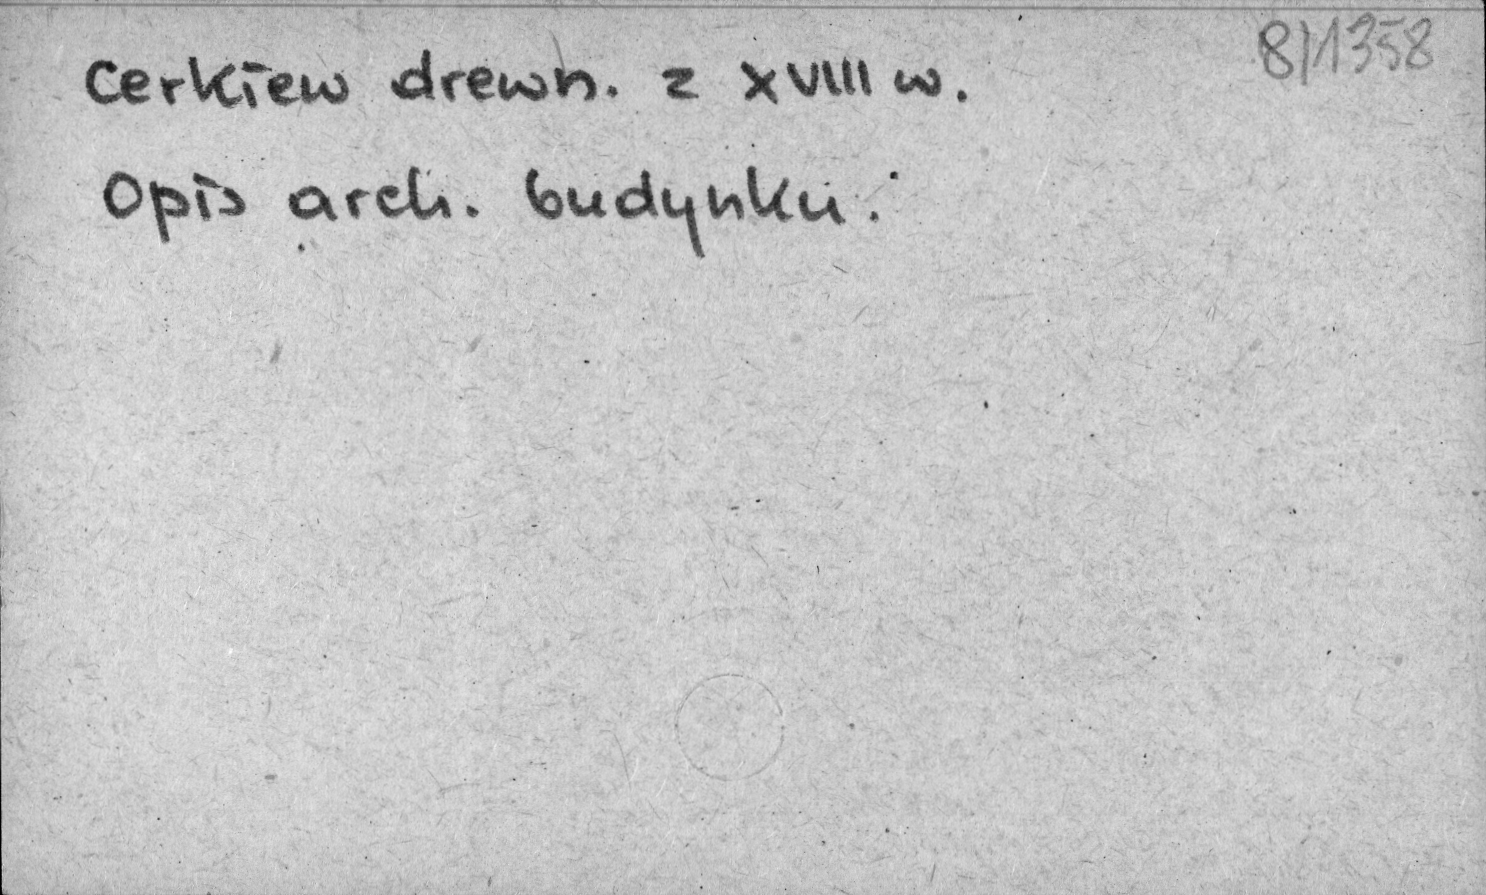 8/1358
Cerkiew drewn. z XVIII w.
Opis arch. budynku.